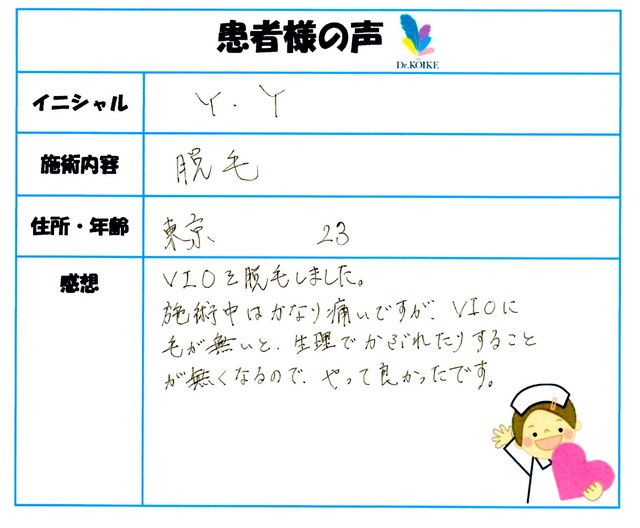 患者様の声
Dr.KOIKE
イニシャル
Y.Y
施術内容
脱毛
住所・年齢
東京 23
感想
VIOを脱毛しました。
施術中はかなり痛いですが、VIOに
毛が無いと、生理でかぶれたりすること
が無くなるので、やって良かったです。